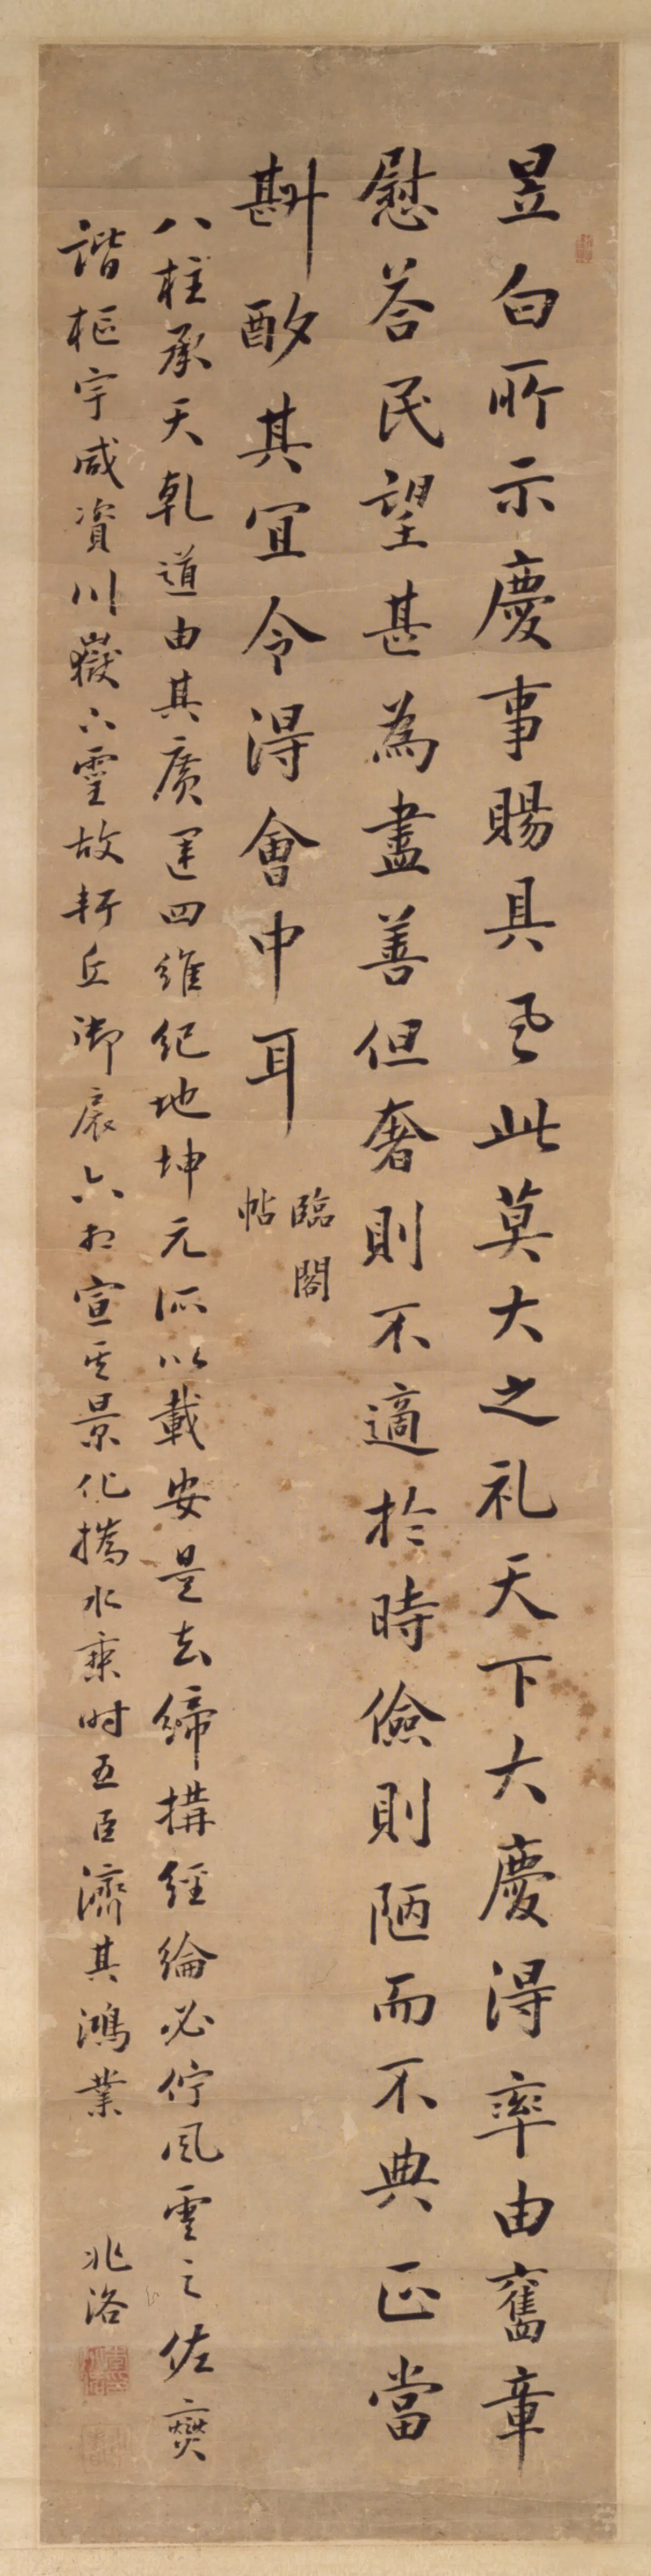 昱白所示慶事賜具 此莫大之礼天下大慶得率由舊章
慰答民望甚為盡善但奢則不適於時儉則陋而不典正當
斟酌其宜令得會中耳
臨閣
帖
八柱承天乾道由其廣運四維紀地坤元所以載安是知締構經綸必佇風雲之佐燮
諧樞宇咸資川嶽之靈故軒丘御宸六相宣其景化撝水乘时五臣濟其鴻業
兆洛